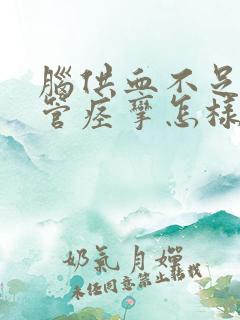 腦供血不足
管痉挛怎樣
奶氣月嬋
未经同意禁止转载